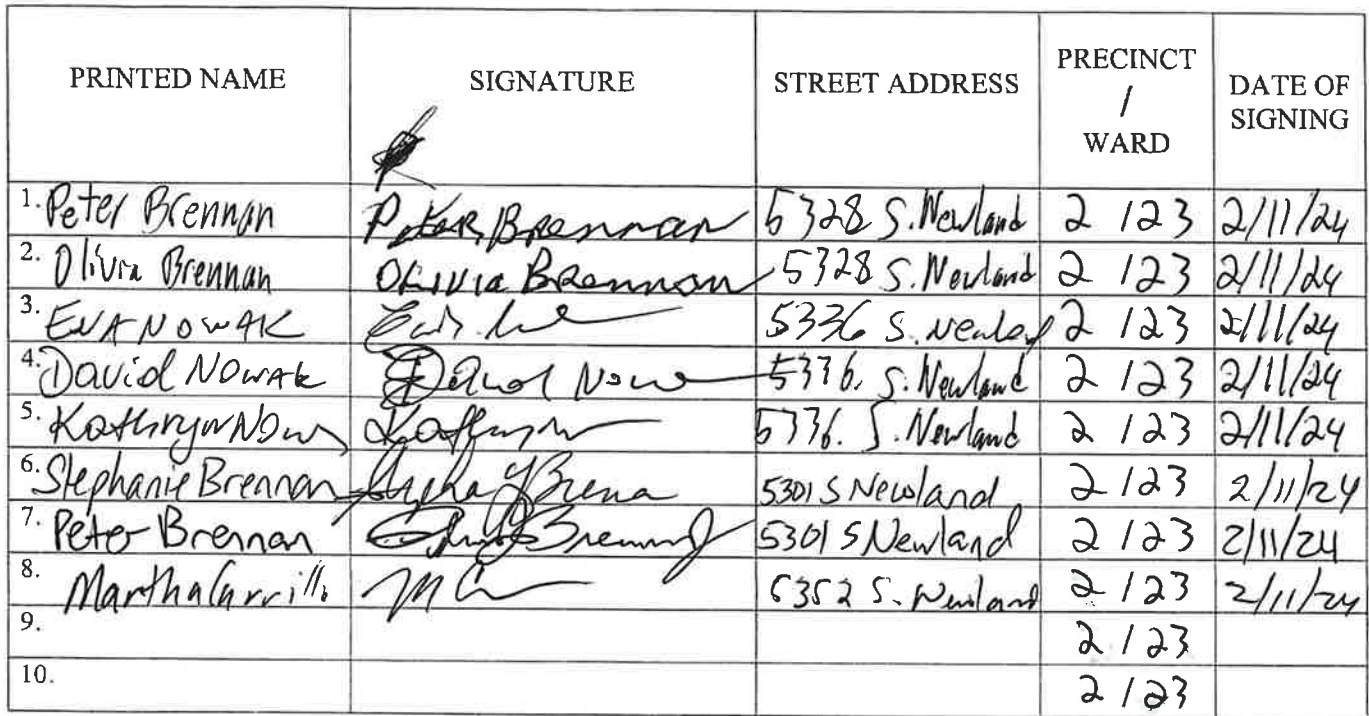 PRINTED NAME SIGNATURE STREET ADDRESS PRECINCT / WARD DATE OF SIGNING
1. Peter Brennan Peter Brennan 5328 S. Newland 2 / 23 2/11/24
2. Olivia Brennan Olivia Brennan 5328 S. Newland 2 / 23 2/11/24
3. EVA NOWAK 5336 S. Newland 2 / 23 2/11/24
4. David Nowak David Nowa 5336. S. Newland 2 / 23 2/11/24
5. Kathryn Now Kathryn 5336. S. Newland 2 / 23 2/11/24
6. Stephanie Brennan 5301 S Newland 2 / 23 2/11/24
7. Peter Brennan 5301 S Newland 2 / 23 2/11/24
8. Martha Carrillo 5352 S. Newland 2 / 23 2/11/24
9. 2 / 23
10. 2 / 23